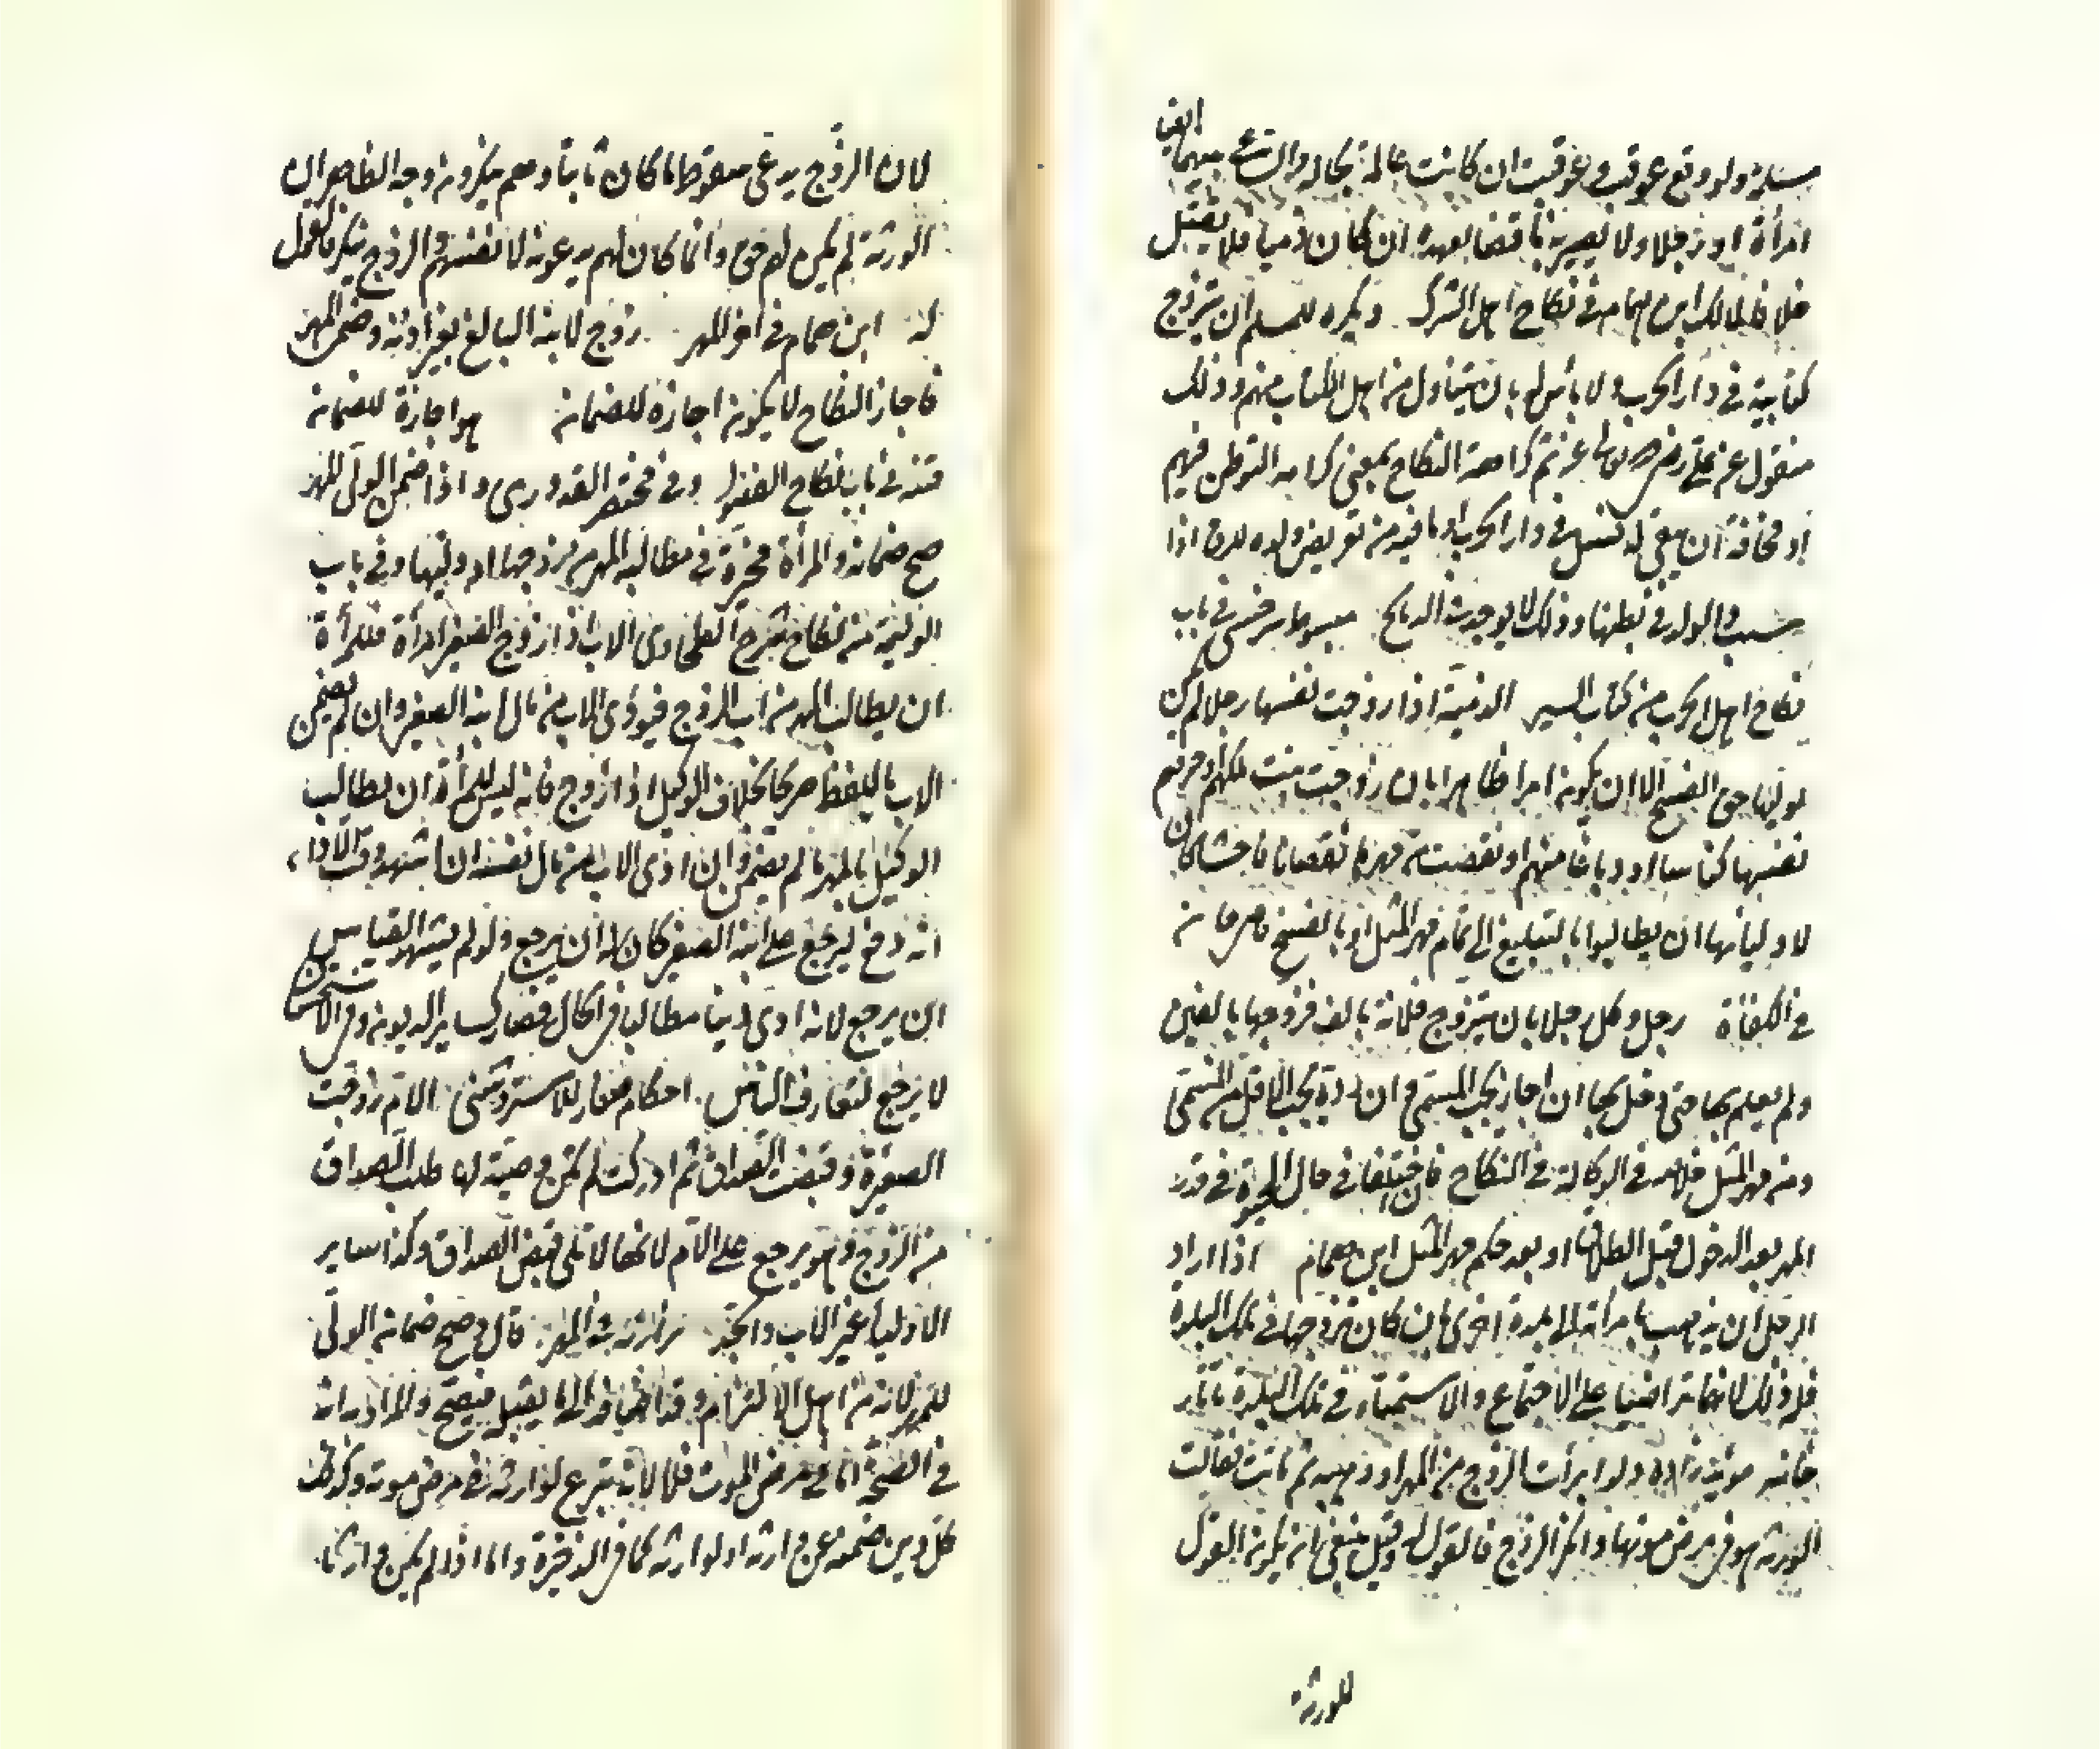 مسلمة ولو وقع عوقب وعوقبت ان كانت عالمة بحاله والساعي بينهما ايضا
امرأة او رجلا ولا يصير به ناقضا لعهده ان كان ذميا فلا يقتل
خلافا لمالك ابن همام في نكاح اهل الشرك ويكره للمسلم ان يتزوج
كتابية في دار الحرب ولا بأس له بان يتناول من اهل الكتاب منهم وذلك
منقول عن علي رضي الله تعالى عنه ثم كراهة النكاح بمعنى كراهة التوطن فيهم
او مخافة ان يبقى له نسل في دار الحرب او لما فيه من تعريض ولده للرق اذا
سبيت والولد في بطنها وذلك لا يوجد في الذبائح مبسوط سرخسي في باب
نكاح اهل الحرب من كتاب السير الذمية اذا زوجت نفسها رجلا لم يكن
لوليها حق الفسخ الا ان يكون امرا ظاهرا بان زوجت بنت ملكهم او حبرهم
نفسها كناسا او دباغا منهم او نقصت من مهرها نقصانا فاحشا كان
لاوليائها ان يطالبوا بالتبليغ الى تمام مهر المثل او بالفسخ
في الكفاءة رجل وكل رجلا بان يتزوج فلانة بالف فزوجها بالفين
ولم يعلم بها حتى دخل بها ان اجاز يجب المسمى وان رده يجب الاقل من المسمى
ومن مهر المثل في الوكالة في النكاح فان اختلفا في حال الحيوة في قدر
المهر بعد الدخول قبل الطلاق او بعده حكم مهر المثل ابن همام اذا اراد
الرجل ان يذهب بامرأته الى بلدة اخرى فان كان تزوجها في تلك البلدة
فله ذلك لانهما تراضيا على الاجتماع والاستمتاع في تلك البلدة
ولو ابرأت الزوج من المهر او وهبته ثم ماتت فقالت
الورثة هو في مرض موتها وانكر الزوج فالقول له وقيل ينبغي ان يكون القول
للورثة
لان الزوج يدعي سقوط ما كان ثابتا وهم ينكرونه وجه الظاهر ان
الورثة لم يكن لهم حق وانما كان لهم يدعونه لانفسهم والزوج ينكر فالقول
له ابن همام في اخر المهر زوج لابنه البالغ بغير اذنه وضمن المهر
فاجاز النكاح لا يكون اجازة للضمان هو اجازة للضمان
قنية في باب نكاح الفضولي وفي مختصر القدوري واذا ضمن الولي المهر
صح ضمانه والمرأة مخيرة في مطالبة المهر من زوجها او وليها وفي باب
الوليمة من نكاح شرح الطحاوي الاب اذا زوج الصغير امرأة فللمرأة
ان يطالب المهر من اب الزوج فيؤدي الاب من مال ابنه الصغير وان لم يضمن
الاب باللفظ صريحا بخلاف الوكيل اذا زوج فانه ليس للمرأة ان يطالب
الوكيل بالمهر ما لم يضمن وان ادى الاب من مال نفسه ان اشهد وقت الاداء
انه دفع ليرجع على ابنه الصغير كان له ان يرجع ولو لم يشهد القياس
ان يرجع لانه ادى دينا مطالبا في الحال فصار كساير الديون وفي الاستحسان
لا يرجع لتعارف الناس احكام صغار للاستروشني الام زوجت
الصغيرة وقبضت الصداق ثم ادركت لم تكن وصية لها طلب الصداق
من الزوج وهو يرجع على الام لانها لا تلي قبض الصداق وكذا ساير
الاولياء غير الاب والجد بزازية في المهر قال وصح ضمان الولي
المهر لانه من اهل الالتزام وقد اضافه الى ما يقبله فيصح والمراد به
في الصحة اما في مرض الموت فلا لانه تبرع لوارثه في مرض موته وكذلك
كل دين ضمنه عن وارثه او لوارثه كما في الذخيرة واما اذا لم يكن وارثا